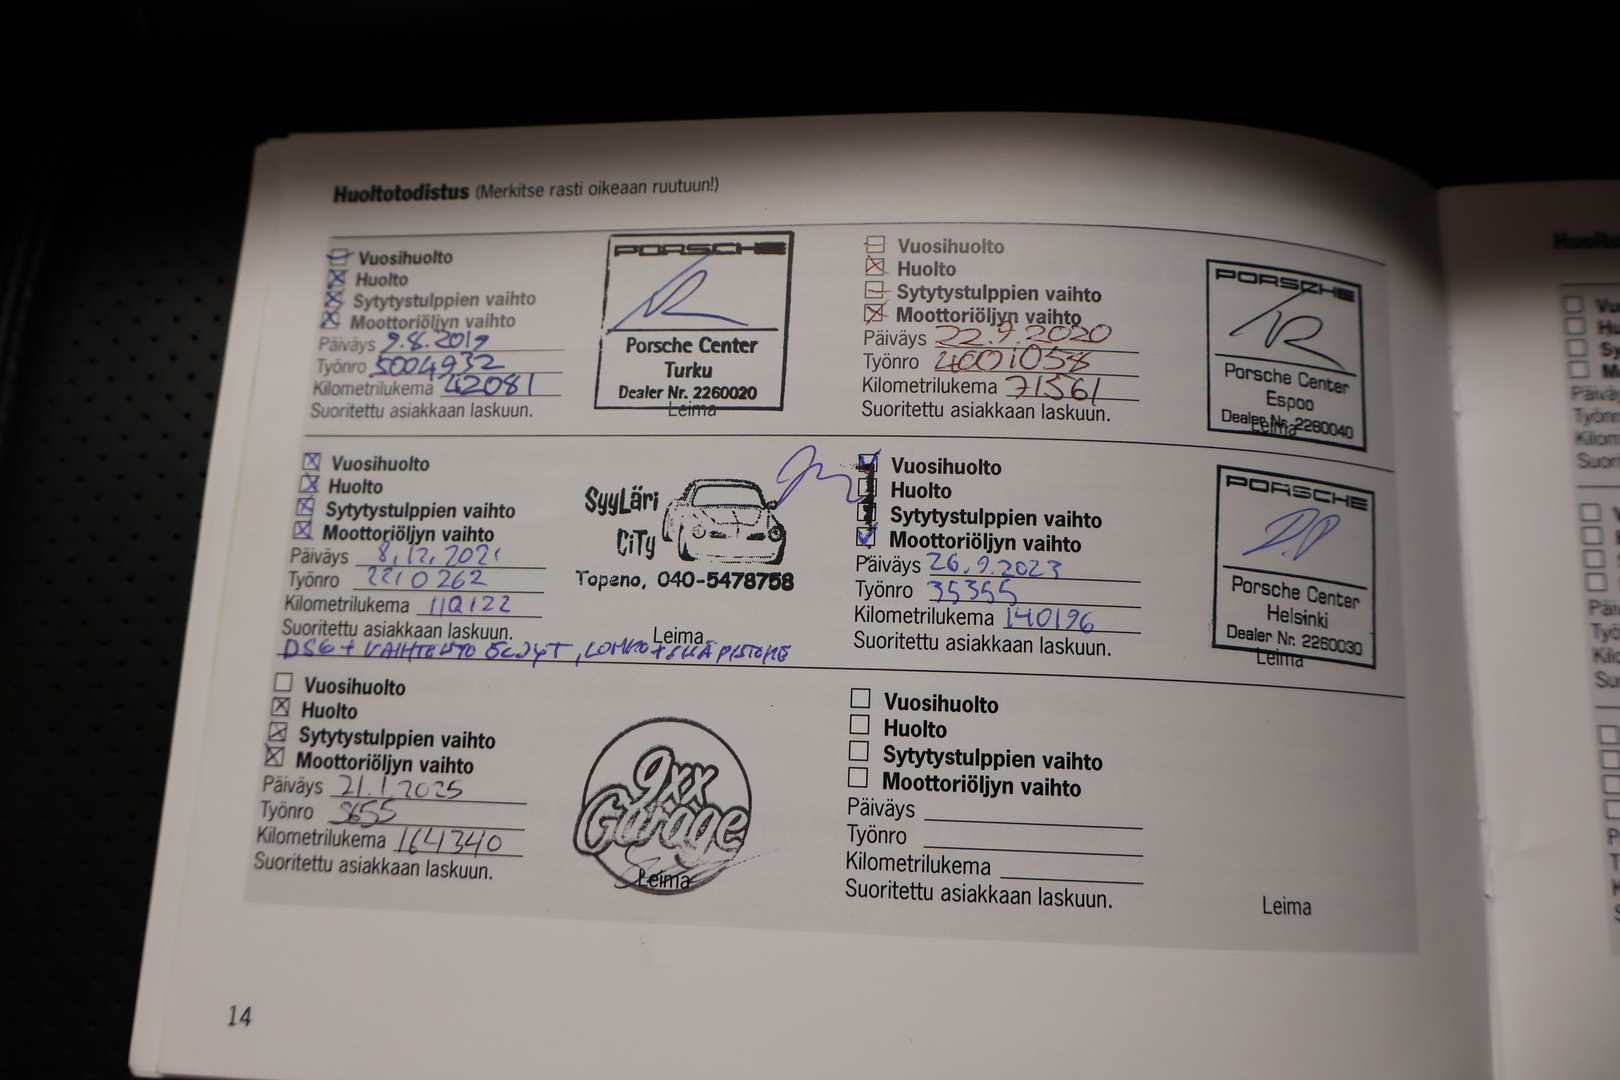 Huoltotodistus (Merkitse rasti oikeaan ruutuun!)
Vuosihuolto
Huolto
Sytytystulppien vaihto
Moottoriöljyn vaihto
Päiväys 9.8.2019
Työnro 5004932
Kilometrilukema 42081
Suoritettu asiakkaan laskuun.
PORSCHE
Porsche Center
Turku
Dealer Nr. 2260020
Leima
Vuosihuolto
Huolto
Sytytystulppien vaihto
Moottoriöljyn vaihto
Päiväys 22.9.2020
Työnro 4001058
Kilometrilukema 71561
Suoritettu asiakkaan laskuun.
PORSCHE
Porsche Center
Espoo
Dealer Nr. 2260040
Leima
Vuosihuolto
Huolto
Sytytystulppien vaihto
Moottoriöljyn vaihto
Päiväys 8.12.2021
Työnro 2210262
Kilometrilukema 110122
Suoritettu asiakkaan laskuun.
SyyLäri
CiTy
Topeno, 040-5478758
Leima
Vuosihuolto
Huolto
Sytytystulppien vaihto
Moottoriöljyn vaihto
Päiväys 26.9.2023
Työnro 35355
Kilometrilukema 140196
Suoritettu asiakkaan laskuun.
PORSCHE
Porsche Center
Helsinki
Dealer Nr. 2260030
Leima
Vuosihuolto
Huolto
Sytytystulppien vaihto
Moottoriöljyn vaihto
Päiväys 21.1.2025
Työnro 5655
Kilometrilukema 164340
Suoritettu asiakkaan laskuun.
9xx
Garage
Leima
Vuosihuolto
Huolto
Sytytystulppien vaihto
Moottoriöljyn vaihto
Päiväys
Työnro
Kilometrilukema
Suoritettu asiakkaan laskuun.
Leima
14